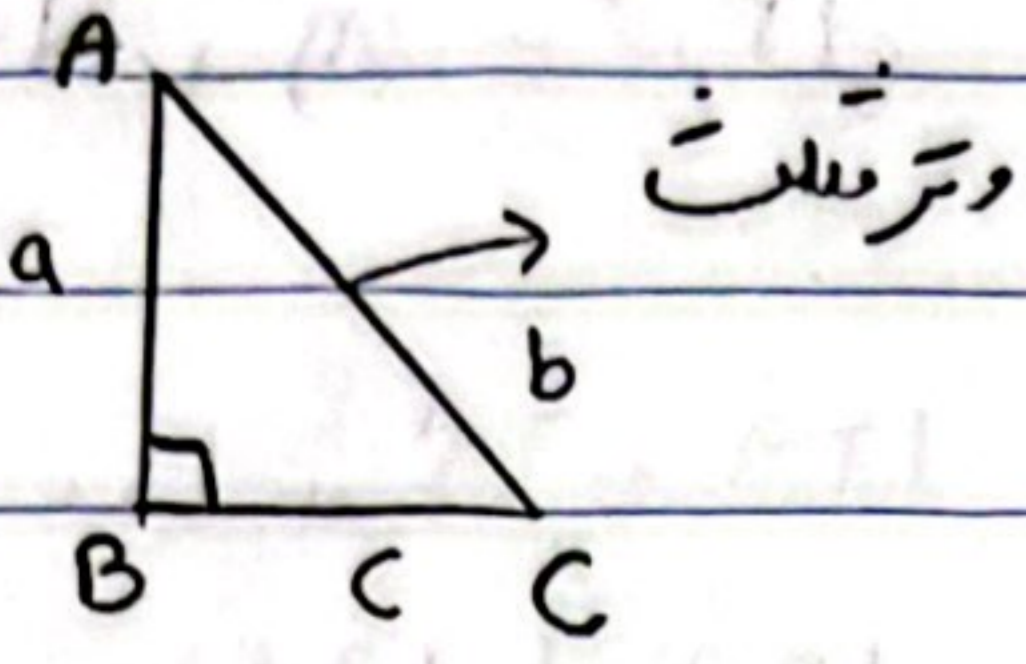 A
وتر مثلث
a
b
B c C